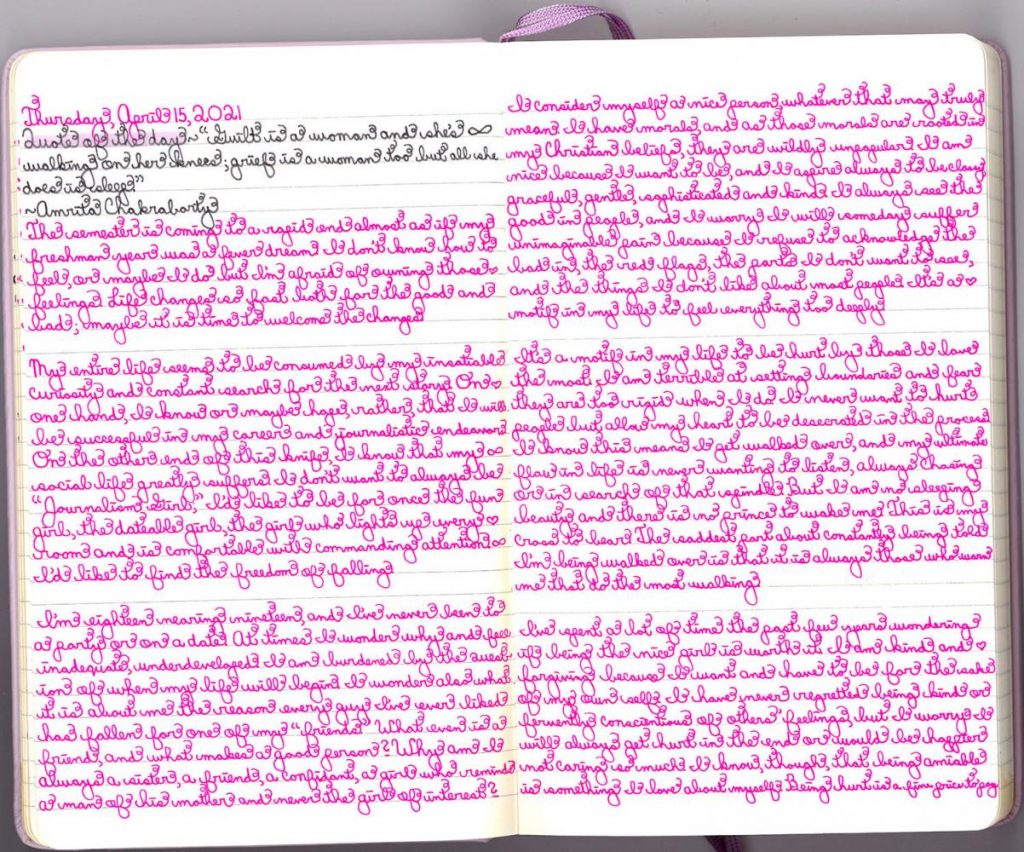 Thursday, April 15, 2021
Quote of the day ~ "Guilt is a woman and she's ∞
walking on her knees; grief is a woman too but all she
does is sleep"
~Amrita Chakraborty
The semester is coming to a rapid end almost as if my
freshman year was a fever dream. I don't know how to
feel, or maybe I do but I'm afraid of owning those
feelings. Life changes so fast both for the good and
bad; maybe it is time to welcome the change.
My entire life seems to be consumed by my insatiable
curiosity and constant search for the next story. On ♡
one hand, I know or maybe hope, rather, that I will
be successful in my career and journalistic endeavors.
On the other end of this knife, I know that my ∞
social life greatly suffers. I don't want to always be
"Journalism Girl," I'd like to be for once the fun
girl, the dateable girl, the girl who lights up every ♡
room and is comfortable with commanding attention. ∞
I'd like to find the freedom of falling.
I'm eighteen nearing nineteen, and I've never been to
a party or on a date. At times I wonder why and feel
inadequate, underdeveloped. I am burdened by the quest-
ion of when my life will begin. I wonder also what
it is about me the reason every guy I've ever liked
has fallen for one of my "friends". What even is a
friend, and what makes a good person? Why am I
always a sister, a friend, a confidant, a girl who reminds
a man of his mother and never the girl of interest?
I consider myself a nice person, whatever that may truly
mean. I have morals, and as those morals are rooted in
my Christian beliefs, they are wildly unpopular. I am
nice because I want to be, and I aspire always to be classy,
graceful, gentle, sophisticated and kind. I always see the
good in people, and I worry I will someday suffer
unimaginable pain because I refuse to acknowledge the
bad in, the red flags, the parts I don't want to see,
and the things I don't like about most people. It's a ♡
motif in my life to feel everything too deeply.
It's a motif in my life to be hurt by those I love
the most. I am terrible at setting boundaries and fear
they are too rigid when I do. I never want to hurt
people but allow my heart to be desecrated in the process.
I know this means I get walked over, and my ultimate
flaw in life is never wanting to listen, always chasing
or in search of that spindle. But I am no sleeping
beauty and there is no prince to wake me. This is my
cross to bear. The saddest part about constantly being told
I'm being walked over is that it is always those who warn
me that do the most walking.
I've spent a lot of time the past few years wondering
if being the nice girl is worth it. I am kind and ♡
forgiving because I want and have to be for the sake
of my own self. I have never regretted being kind or
fervently conscientious of others' feelings, but I worry I
will always get hurt in the end or would be happier
not caring so much. I know, though, that being amiable
is something I love about myself. Being hurt is a fine price to pay